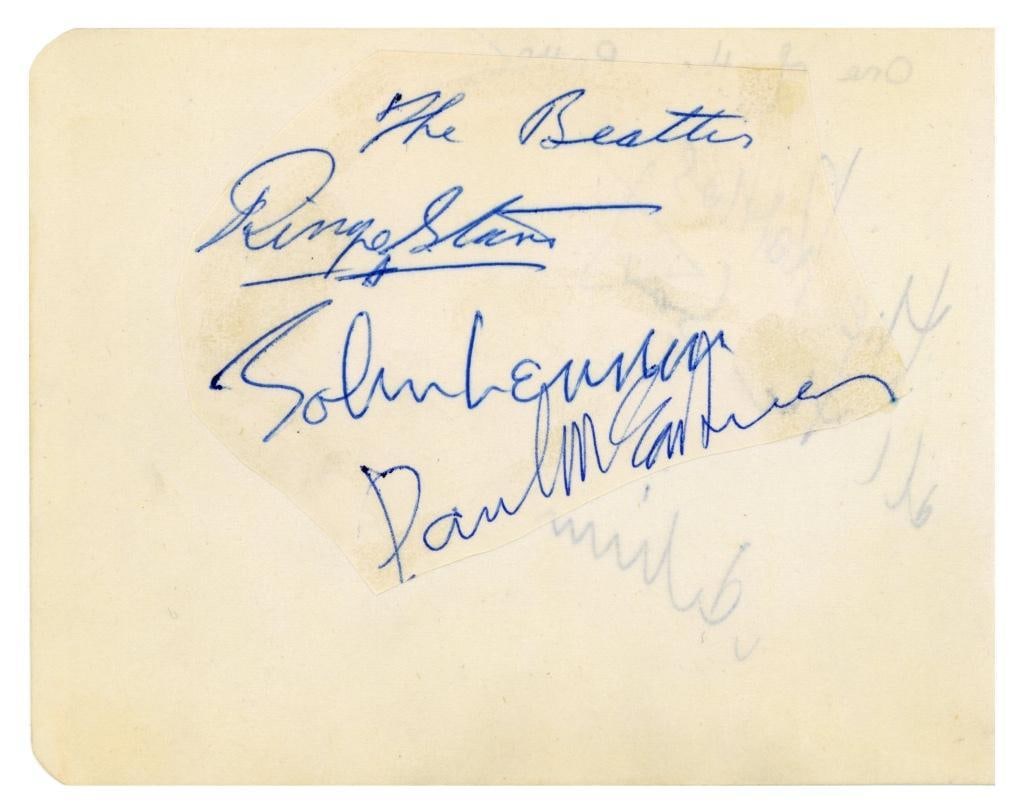 The Beatles
Ringo Starr
John Lennon
Paul McCartney